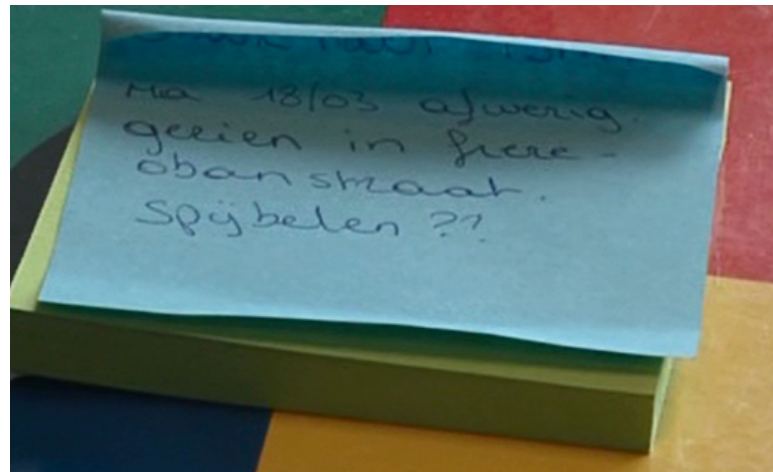 Ma 18/03 afwezig.
gezien in frere-
obanstraat.
Spijbelen ??